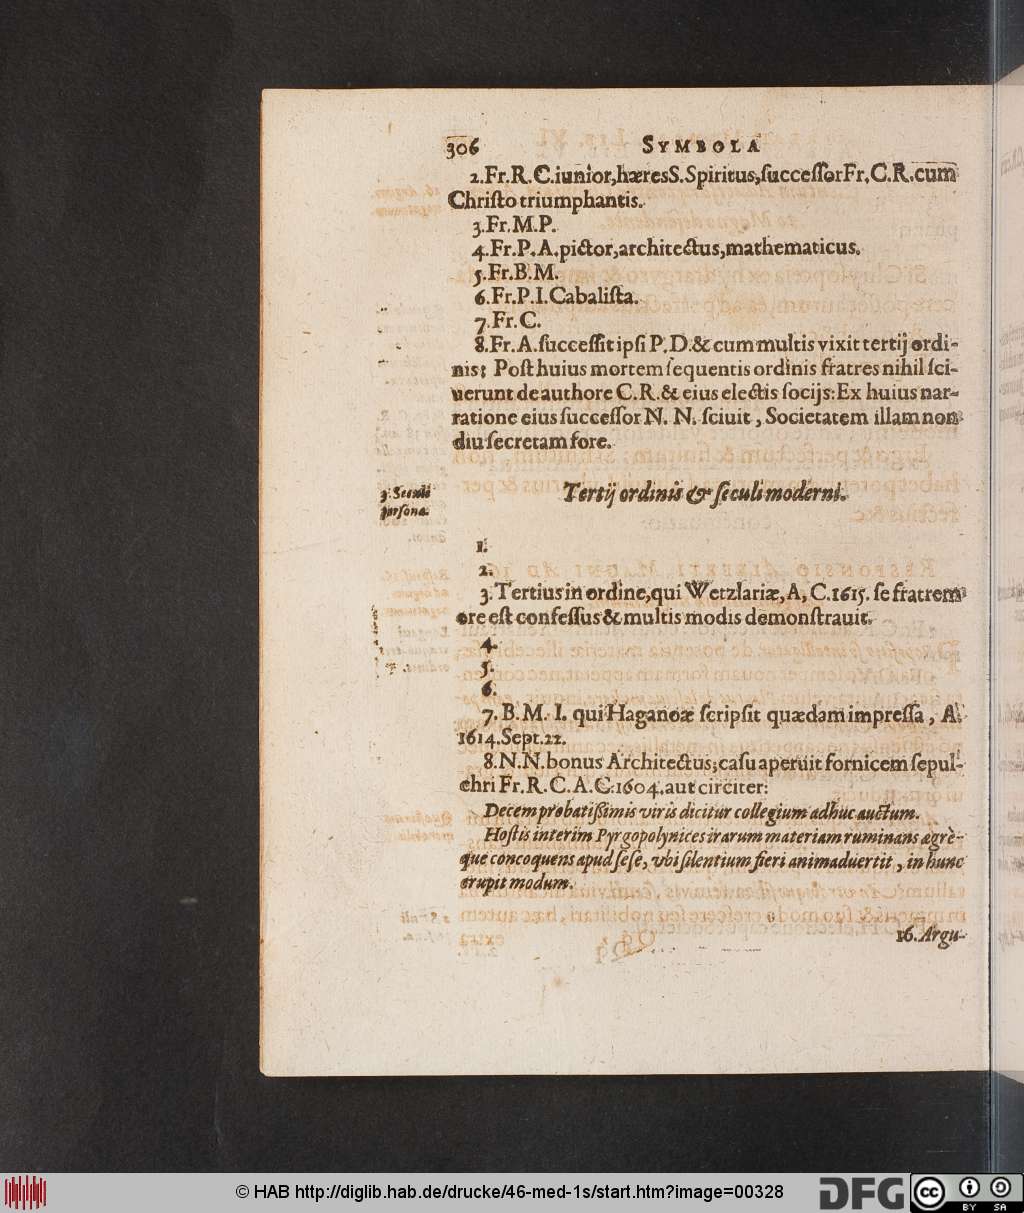 306 SYMBOLA
2. Fr. R. C. iunior, hæres S. Spiritus, ſucceſſor Fr. C. R. cum
Chriſto triumphantis.
3. Fr. M. P.
4. Fr. P. A. pictor, architectus, mathematicus.
5. Fr. B. M.
6. Fr. P. I. Cabaliſta.
7. Fr. C.
8. Fr. A. ſucceſſit ipſi P. D. & cum multis vixit tertij ordi-
nis: Poſt huius mortem ſequentis ordinis fratres nihil ſci-
uerunt de authore C. R. & eius electis ſocijs: Ex huius nar-
ratione eius ſucceſſor N. N. ſciuit, Societatem illam non
diu ſecretam fore.
3. Seculi
perſonæ.
Tertij ordinis & ſeculi moderni.
1.
2.
3. Tertius in ordine, qui Wetzlariæ, A, C. 1615. ſe fratrem
ore eſt confeſſus & multis modis demonſtrauit.
4.
5.
6.
7. B. M. I. qui Haganoæ ſcripſit quædam impreſſa, A.
1614. Sept. 22.
8. N. N. bonus Architectus; caſu aperuit fornicem ſepul-
chri Fr. R. C. A. C. 1604. aut circiter:
Decem probatiſſimis viris dicitur collegium adhuc auctum.
Hoſtis interim Pyrgopolynices irarum materiam ruminans ægrè-
que concoquens apud ſeſe, vbi ſilentium fieri animaduertit, in hunc
erupit modum.
16. Argu-
© HAB http://diglib.hab.de/drucke/46-med-1s/start.htm?image=00328
DFG
cc BY SA